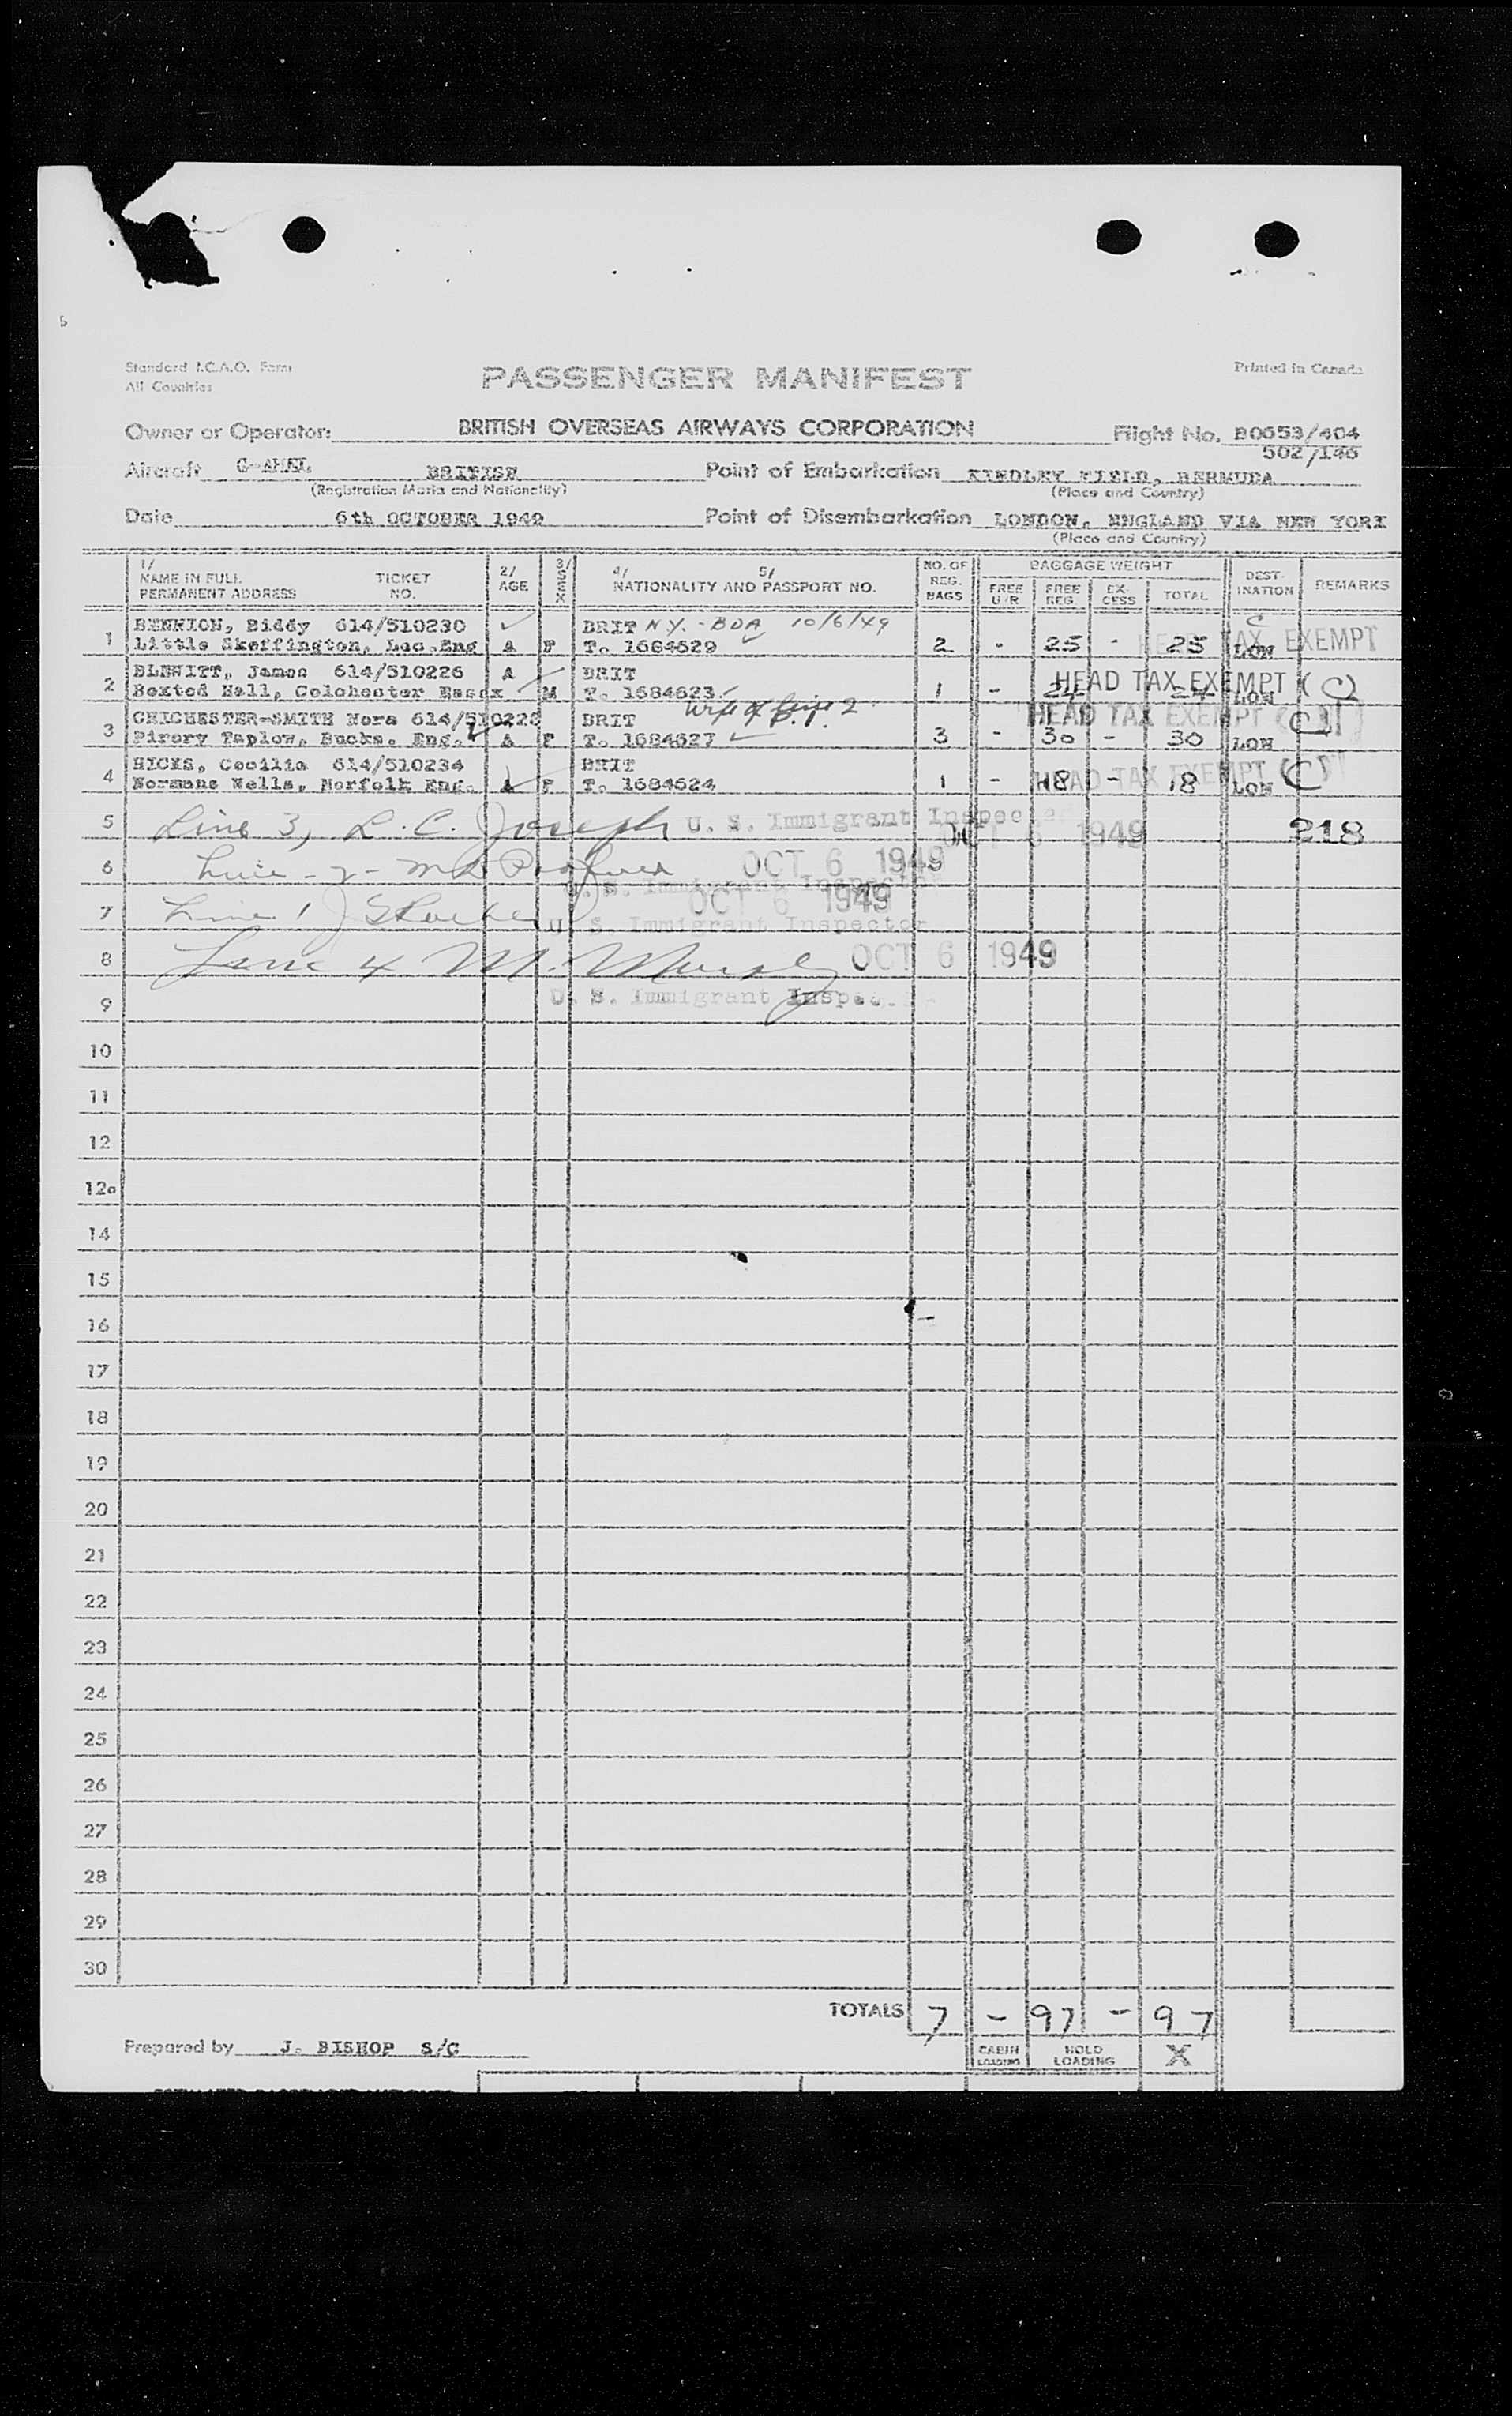 Standard I.C.A.O. Form
All Countries
PASSENGER MANIFEST
Printed in Canada
Owner or Operator: BRITISH OVERSEAS AIRWAYS CORPORATION Flight No. B0653/404
502/146
Aircraft BRITISH Point of Embarkation KINDLEY FIELD, BERMUDA
(Registration Marks and Nationality) (Place and Country)
Date 6th OCTOBER 1949 Point of Disembarkation LONDON, ENGLAND VIA NEW YORK
(Place and Country)
1/ NAME IN FULL PERMANENT ADDRESS TICKET NO. 2/ AGE 3/ SEX 4/ 5/ NATIONALITY AND PASSPORT NO. NO. OF REG. BAGS BAGGAGE WEIGHT FREE U/R FREE REG. EX-CESS TOTAL DEST-INATION REMARKS
BENNION, Biddy 614/510230 BRIT N.Y. - BDA 10/6/49 C
1 Little Skeffington, Lec.Eng A F T. 1684629 2 - 25 - 25 LON TAX EXEMPT
BLEWITT, James 614/510226 A BRIT HEAD TAX EXEMPT (C)
2 Boxted Hall, Colchester Essex M T. 1684623 1 - 24 24 LON
CHICHESTER-SMITH Nora 614/510228 BRIT wife of line 2 HEAD TAX EXEMPT (C)
3 Pirory Taplow, Bucks. Eng. A F T. 1684627 3 - 30 - 30 LON
HICKS, Cecilia 614/510234 BRIT HEAD TAX EXEMPT (C)
4 Normans Wells, Norfolk Eng. A F T. 1684624 1 - 18 - 18 LON
5 Line 3, L. C. Joseph U. S. Immigrant Inspec OCT 6 1949 218
6 Line - 2 - OCT 6 1949
U. S. Immigrant Inspector
7 Line 1 OCT 6 1949
U. S. Immigrant Inspector
8 Line 4 M. Murphy OCT 6 1949
9 U. S. Immigrant Inspec
10
11
12
12a
14
15
16
17
18
19
20
21
22
23
24
25
26
27
28
29
30
TOTALS 7 - 97 - 97
Prepared by J. BISHOP S/C CABIN LOADING HOLD LOADING X